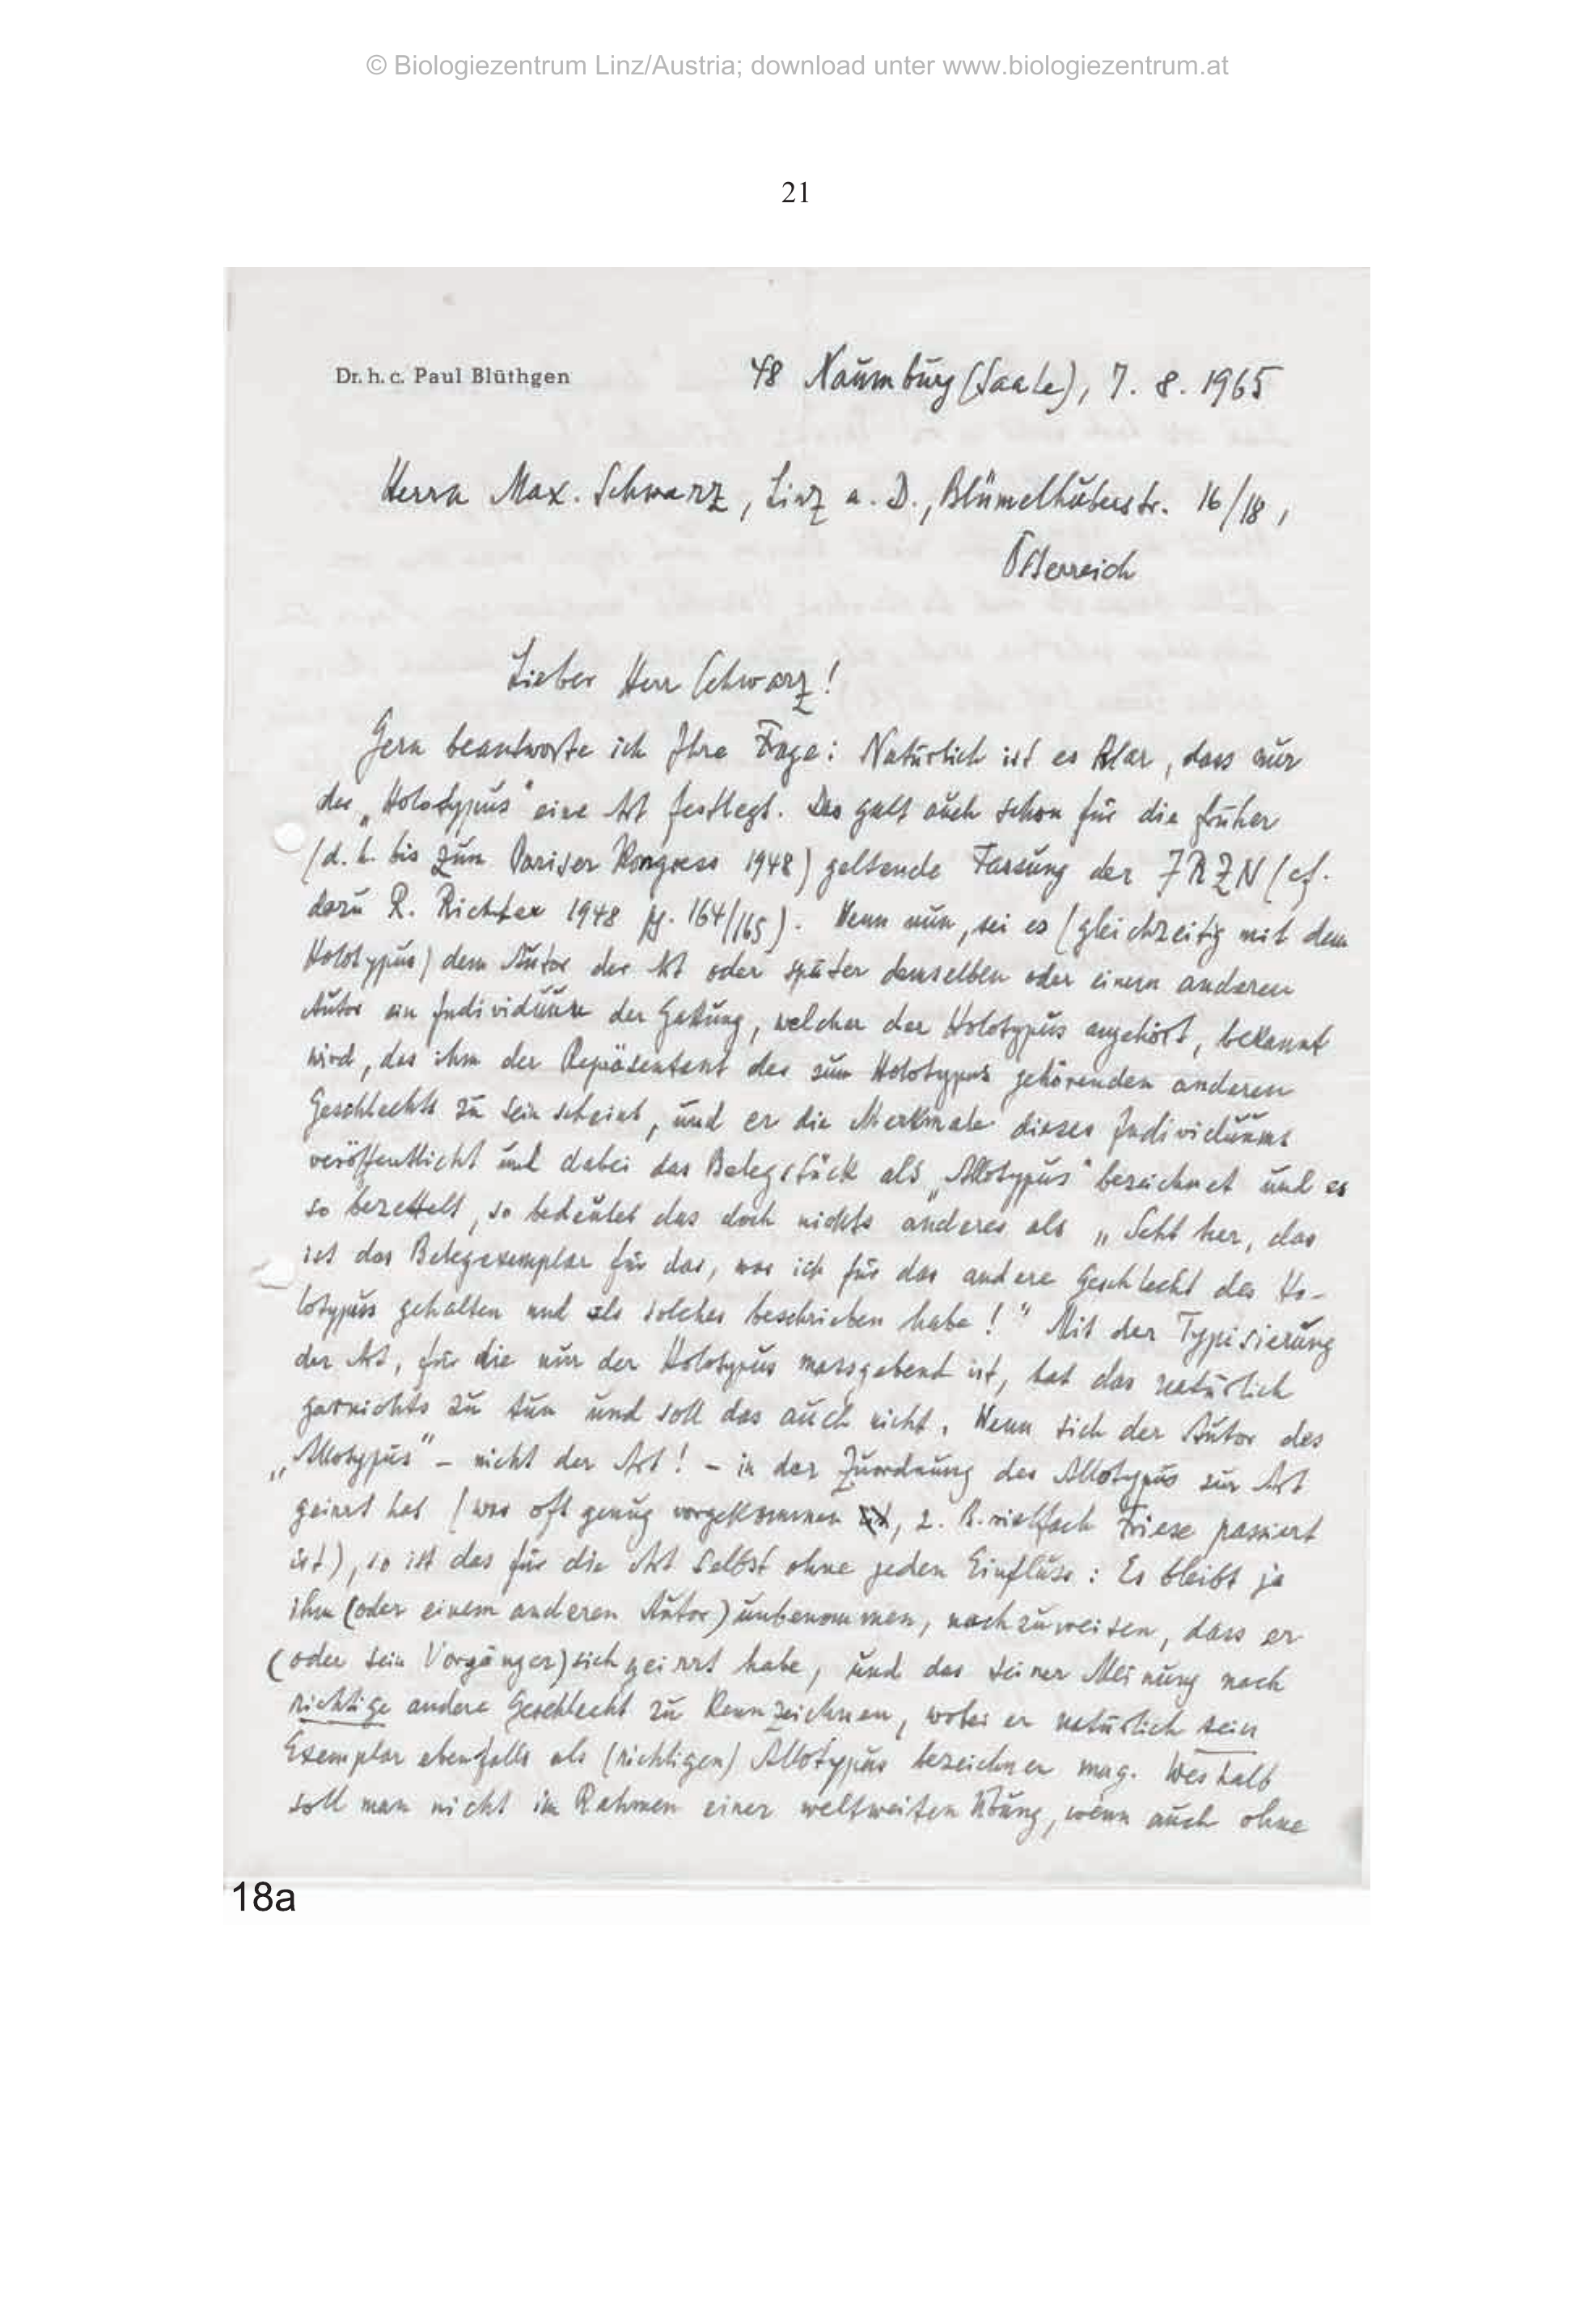 © Biologiezentrum Linz/Austria; download unter www.biologiezentrum.at
21
Dr. h. c. Paul Blüthgen
48 Naumburg (Saale), 7. 8. 1965
Herrn Max. Schwarz, Linz a. D., Blümelhuberstr. 16/18,
Österreich
Lieber Herr Schwarz!
Gern beantworte ich Ihre Frage: Natürlich ist es klar, dass nur
der „Holotypus" eine Art festlegt. Das galt auch schon für die früher
(d. h. bis zum Pariser Kongress 1948) geltende Fassung der IRZN (cf.
dazu R. Richter 1948 pg. 164/165). Wenn nun, sei es (gleichzeitig mit dem
Holotypus) dem Autor der Art oder später demselben oder einem anderen
Autor ein Individuum der Gattung, welcher der Holotypus angehört, bekannt
wird, das ihm der Repräsentant des zum Holotypus gehörenden anderen
Geschlechts zu sein scheint, und er die Merkmale dieses Individuums
veröffentlicht und dabei das Belegstück als „Allotypus" bezeichnet und es
so bezettelt, so bedeutet das doch nichts anderes als „Seht her, das
ist das Belegexemplar für das, was ich für das andere Geschlecht des Ho-
lotypus gehalten und als solches beschrieben habe!" Mit der Typisierung
der Art, für die nur der Holotypus massgebend ist, hat das natürlich
garnichts zu tun und soll das auch nicht. Wenn sich der Autor des
„Allotypus" – nicht der Art! – in der Zuordnung des Allotypus zur Art
geirrt hat (was oft genug vorgekommen, z. B. vielfach Friese passiert
ist), so ist das für die Art selbst ohne jeden Einfluss: Es bleibt ja
ihm (oder einem anderen Autor) unbenommen, nachzuweisen, dass er
(oder sein Vorgänger) sich geirrt habe, und das seiner Meinung nach
richtige andere Geschlecht zu kennzeichnen, wobei er natürlich sein
Exemplar ebenfalls als (richtigen) Allotypus bezeichnen mag. Weshalb
soll man nicht im Rahmen einer weltweiten Übung, wenn auch ohne
18a